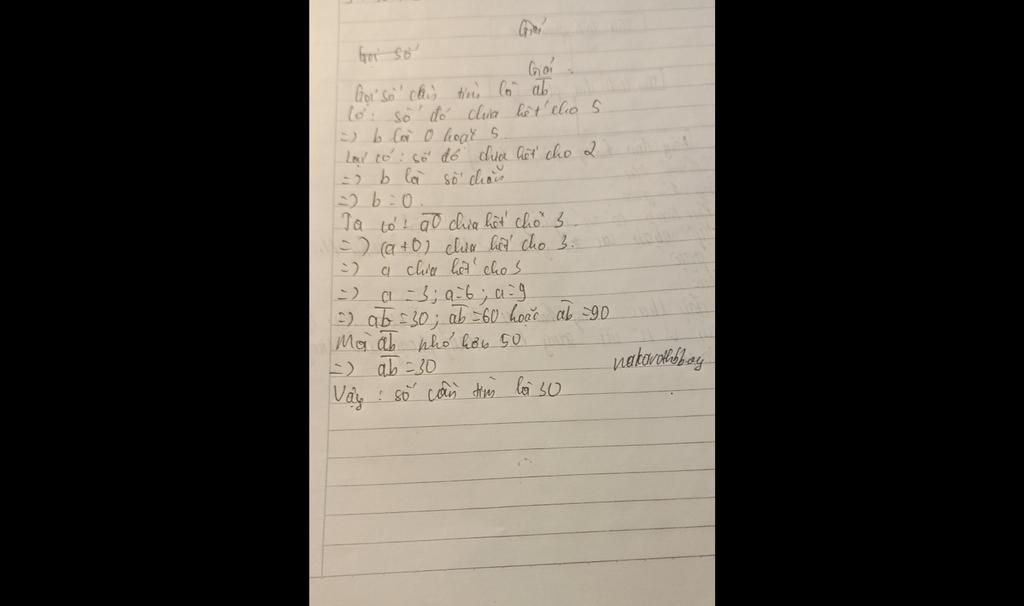 Giải
Gọi số
Giải
Gọi số cần tìm là ab
Có: số đó chia hết cho 5
=> b là 0 hoặc 5
Lại có: số đó chia hết cho 2
=> b là số chẵn
=> b = 0.
Ta có: a0 chia hết cho 3
=> (a+0) chia hết cho 3.
=> a chia hết cho 3
=> a = 3; a=6; a=9
=> ab = 30; ab = 60 hoặc ab = 90
Mà ab nhỏ hơn 50
=> ab = 30
Vậy: số cần tìm là 30